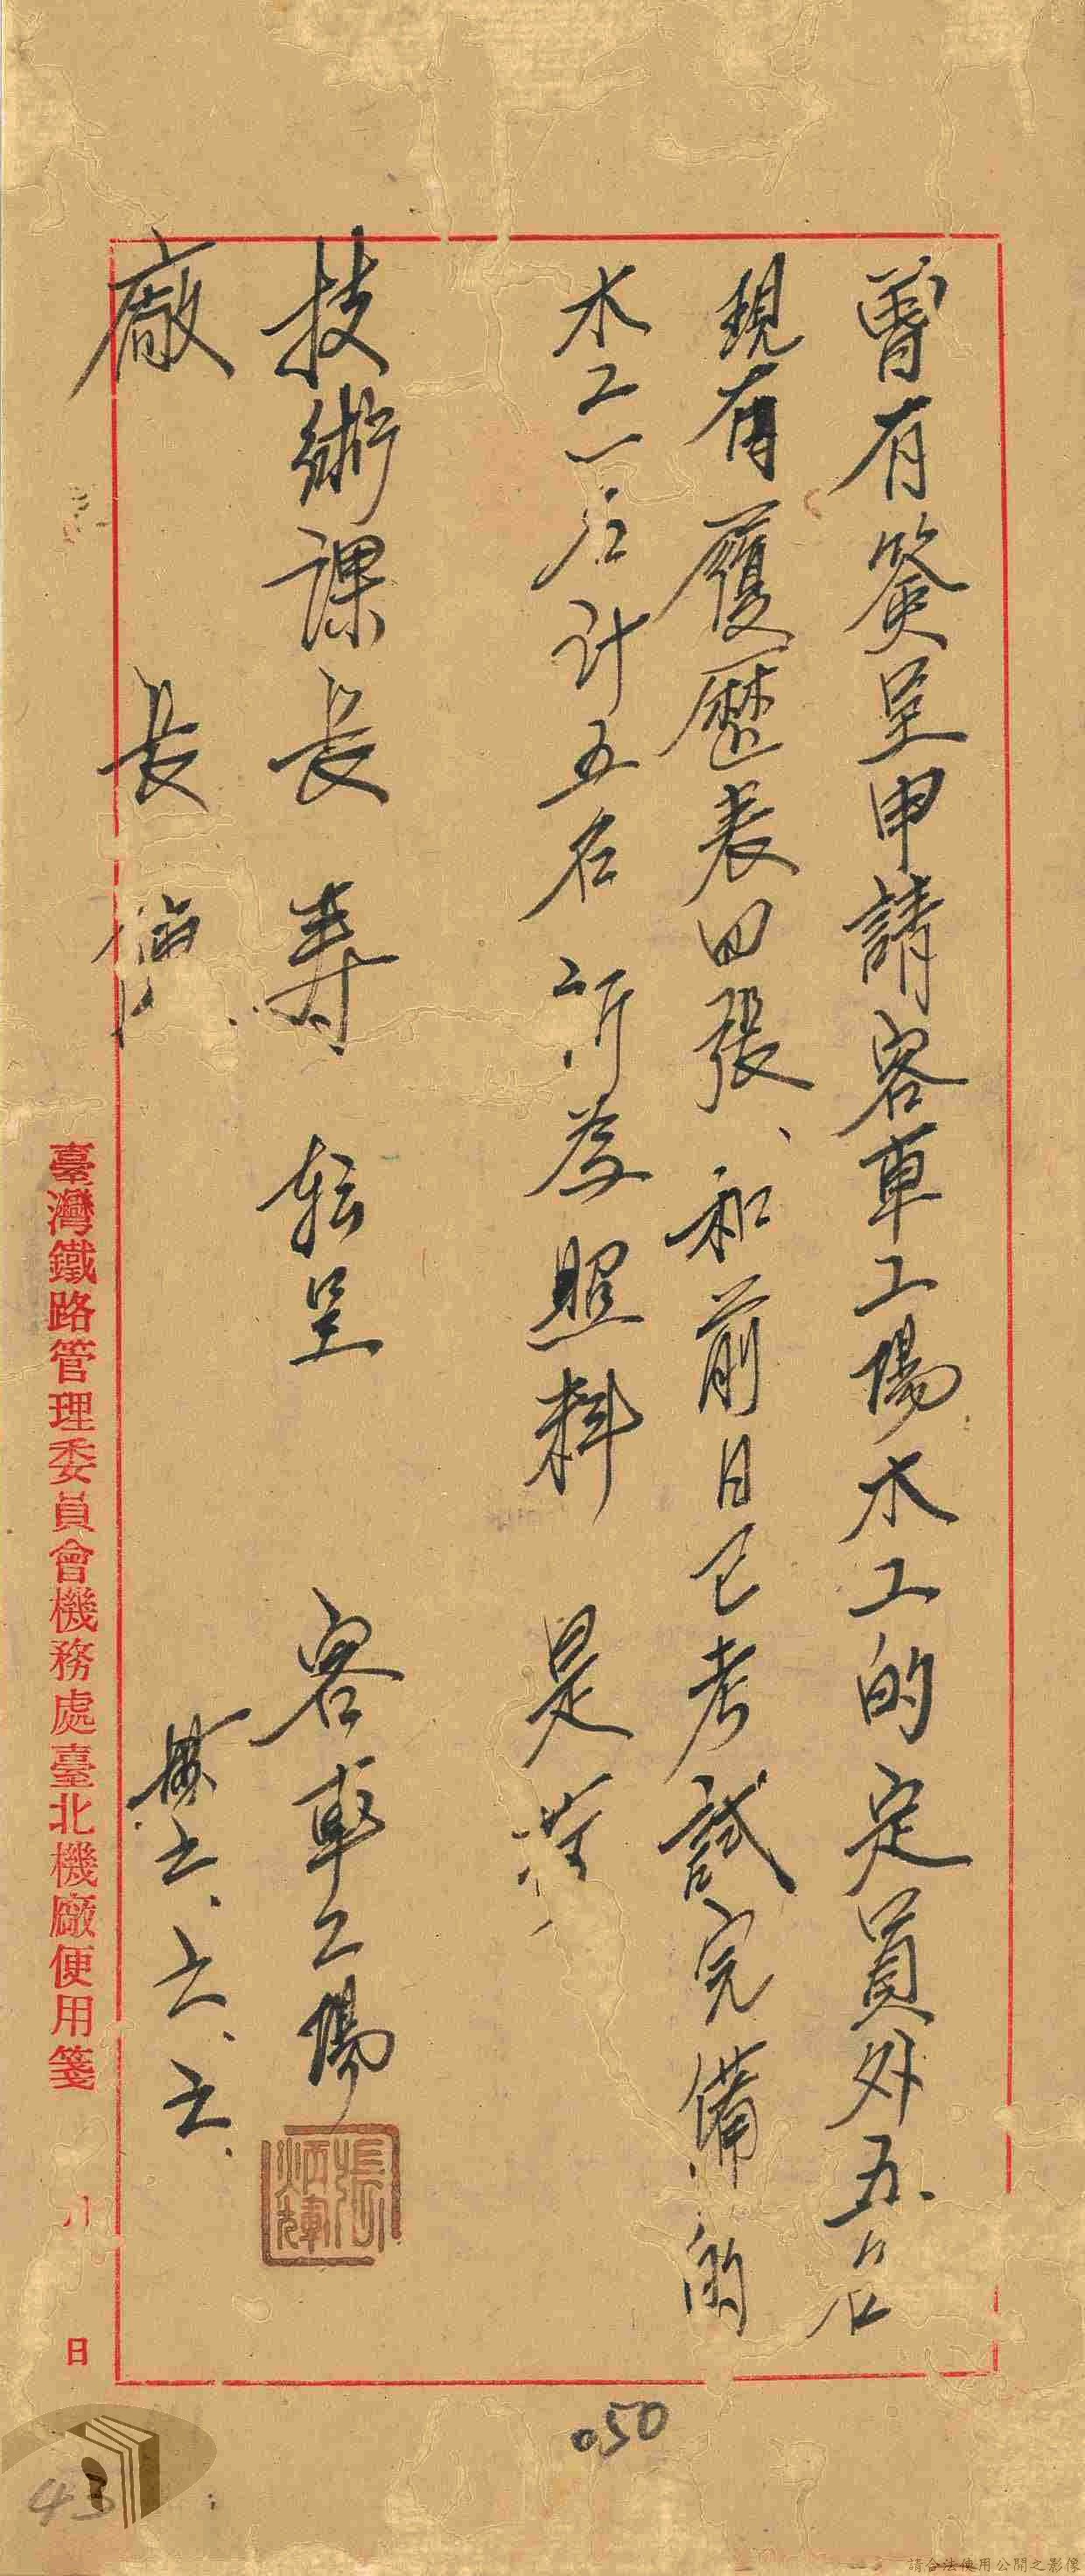 曾有簽呈申請客車工場木工的定員外五名
現有履歷表四張、和前日已考試完備的
木工一名計五名祈為照料 是荷
技術課長 壽 転呈 客車工場
廠 長 陳
臺灣鐵路管理委員會機務處臺北機廠便用箋 月 日
張炳輝
050
43
請合法使用公開之影像